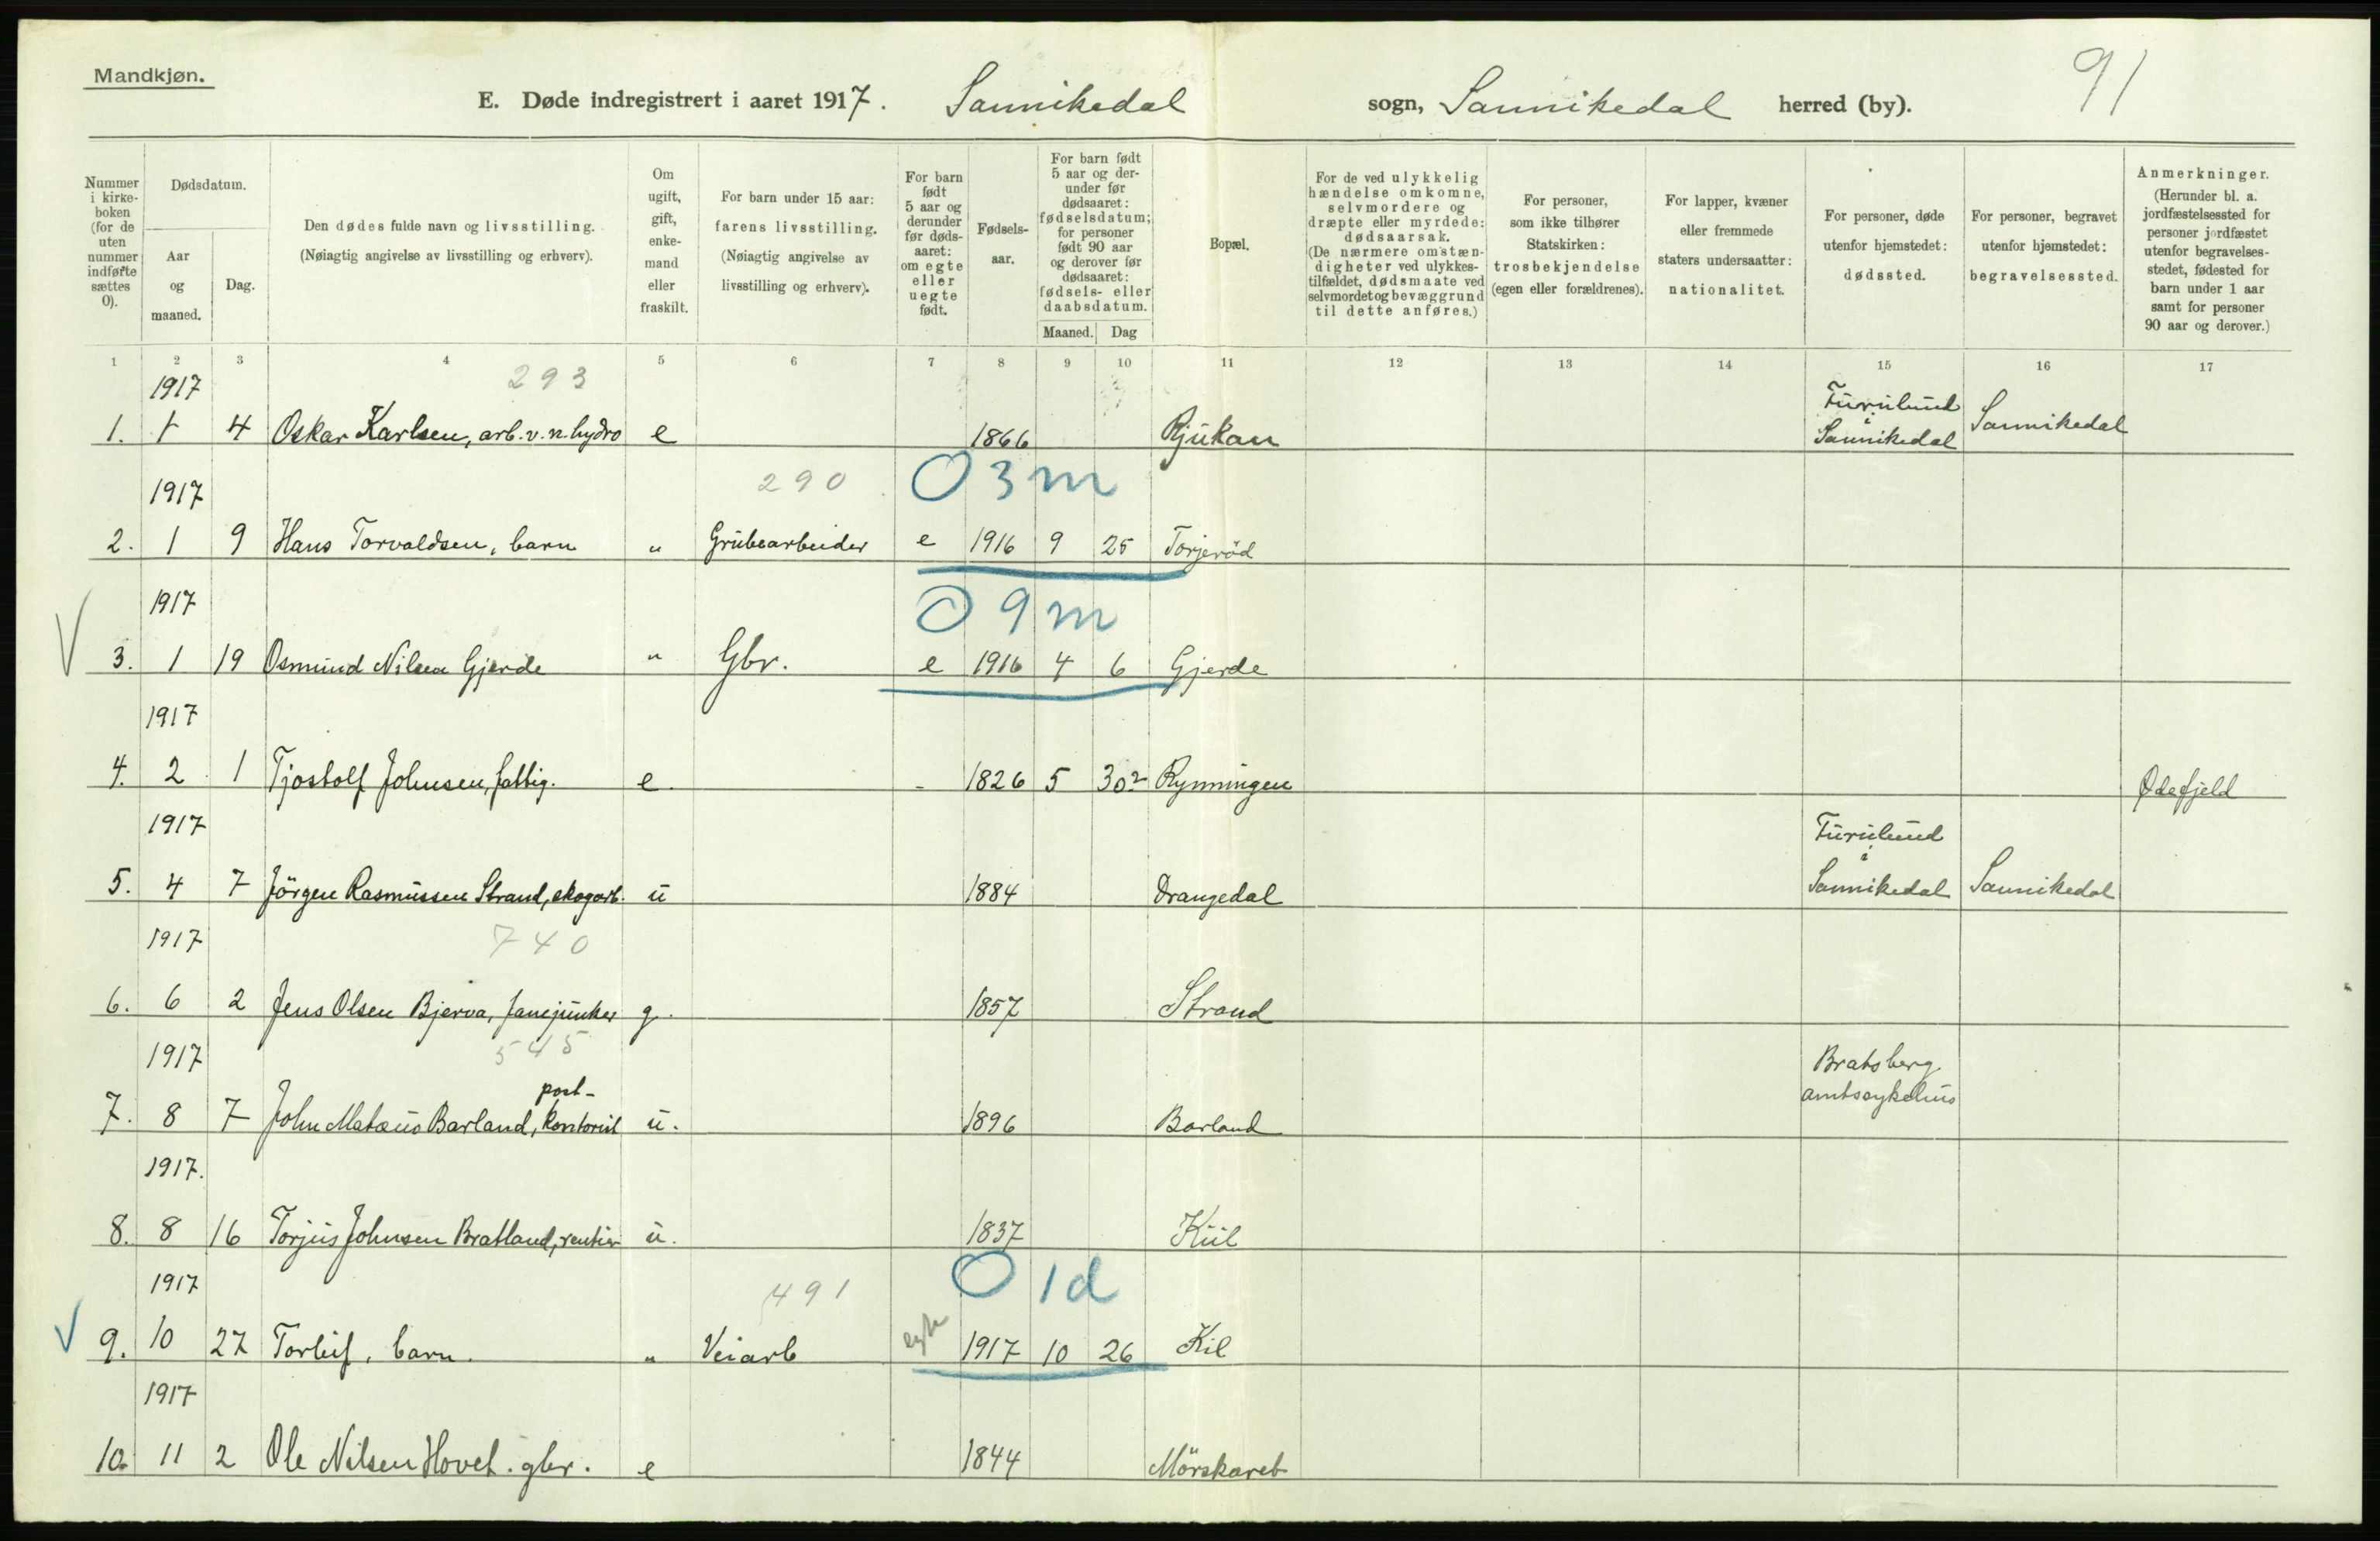 Mandkjøn.
91
E. Døde indregistrert i aaret 1917. Sannikedal sogn, Sannikedal herred (by).
Nummer i kirke-boken (for de uten nummer indførte sættes 0).
Dødsdatum.
Aar og maaned.
Dag.
Den dødes fulde navn og livsstilling.
(Nøiagtig angivelse av livsstilling og erhverv).
Om ugift, gift, enke-mand eller fraskilt.
For barn under 15 aar: farens livsstilling. (Nøiagtig angivelse av livsstilling og erhverv).
For barn født 5 aar og derunder før døds-aaret: om egte eller uegte født.
Fødsels-aar.
For barn født 5 aar og der-under før dødsaaret: fødselsdatum; for personer født 90 aar og derover før dødsaaret: fødsels- eller daabsdatum.
Maaned. Dag
Bopæl.
For de ved ulykkelig hændelse omkomne, selvmordere og dræpte eller myrdede: dødsaarsak. (De nærmere omstæn-digheter ved ulykkes-tilfældet, dødsmaate ved selvmordet og bevæggrund til dette anføres.)
For personer, som ikke tilhører Statskirken: trosbekjendelse (egen eller forældrenes).
For lapper, kvæner eller fremmede staters undersaatter: nationalitet.
For personer, døde utenfor hjemstedet: dødssted.
For personer, begravet utenfor hjemstedet: begravelsessted.
Anmerkninger. (Herunder bl. a. jordfæstelsessted for personer jordfæstet utenfor begravelses-stedet, fødested for barn under 1 aar samt for personer 90 aar og derover.)
1 2 3 4 5 6 7 8 9 10 11 12 13 14 15 16 17
1917 293
1. 1 4 Oskar Karlsen, arb. v. n. hydro e 1866 Rjukan Furulund i Sannikedal Sannikedal
1917 290 0 3 m
2. 1 9 Hans Torvaldsen, barn " Grubearbeider e 1916 9 25 Torjeröd
1917 0 9 m
3. 1 19 Osmund Nilsen Gjerde " Gbr. e 1916 4 6 Gjerde
1917
4. 2 1 Tjostolf Johnsen, fattig. e. - 1826 5 30? Rynningen Ødefjeld
1917
5. 4 7 Jörgen Rasmussen Strand, skogarb. u 1884 Drangedal Furulund i Sannikedal Sannikedal
1917 740
6. 6 2 Jens Olsen Bjerva, fanejunker g. 1857 Strand
1917 545
7. 8 7 John Matæus Barland, post-kontorist u. 1896 Barland Bratsberg amtssykehus
1917.
8. 8 16 Torjus Johnsen Bratland, rentier u. 1837 Kiil
1917 491 0 1 d
9. 10 27 Torleif, barn. " Veiarb egte 1917 10 26 Kil
1917
10. 11 2 Ole Nilsen Hovet. gbr. e 1844 Mörskaret